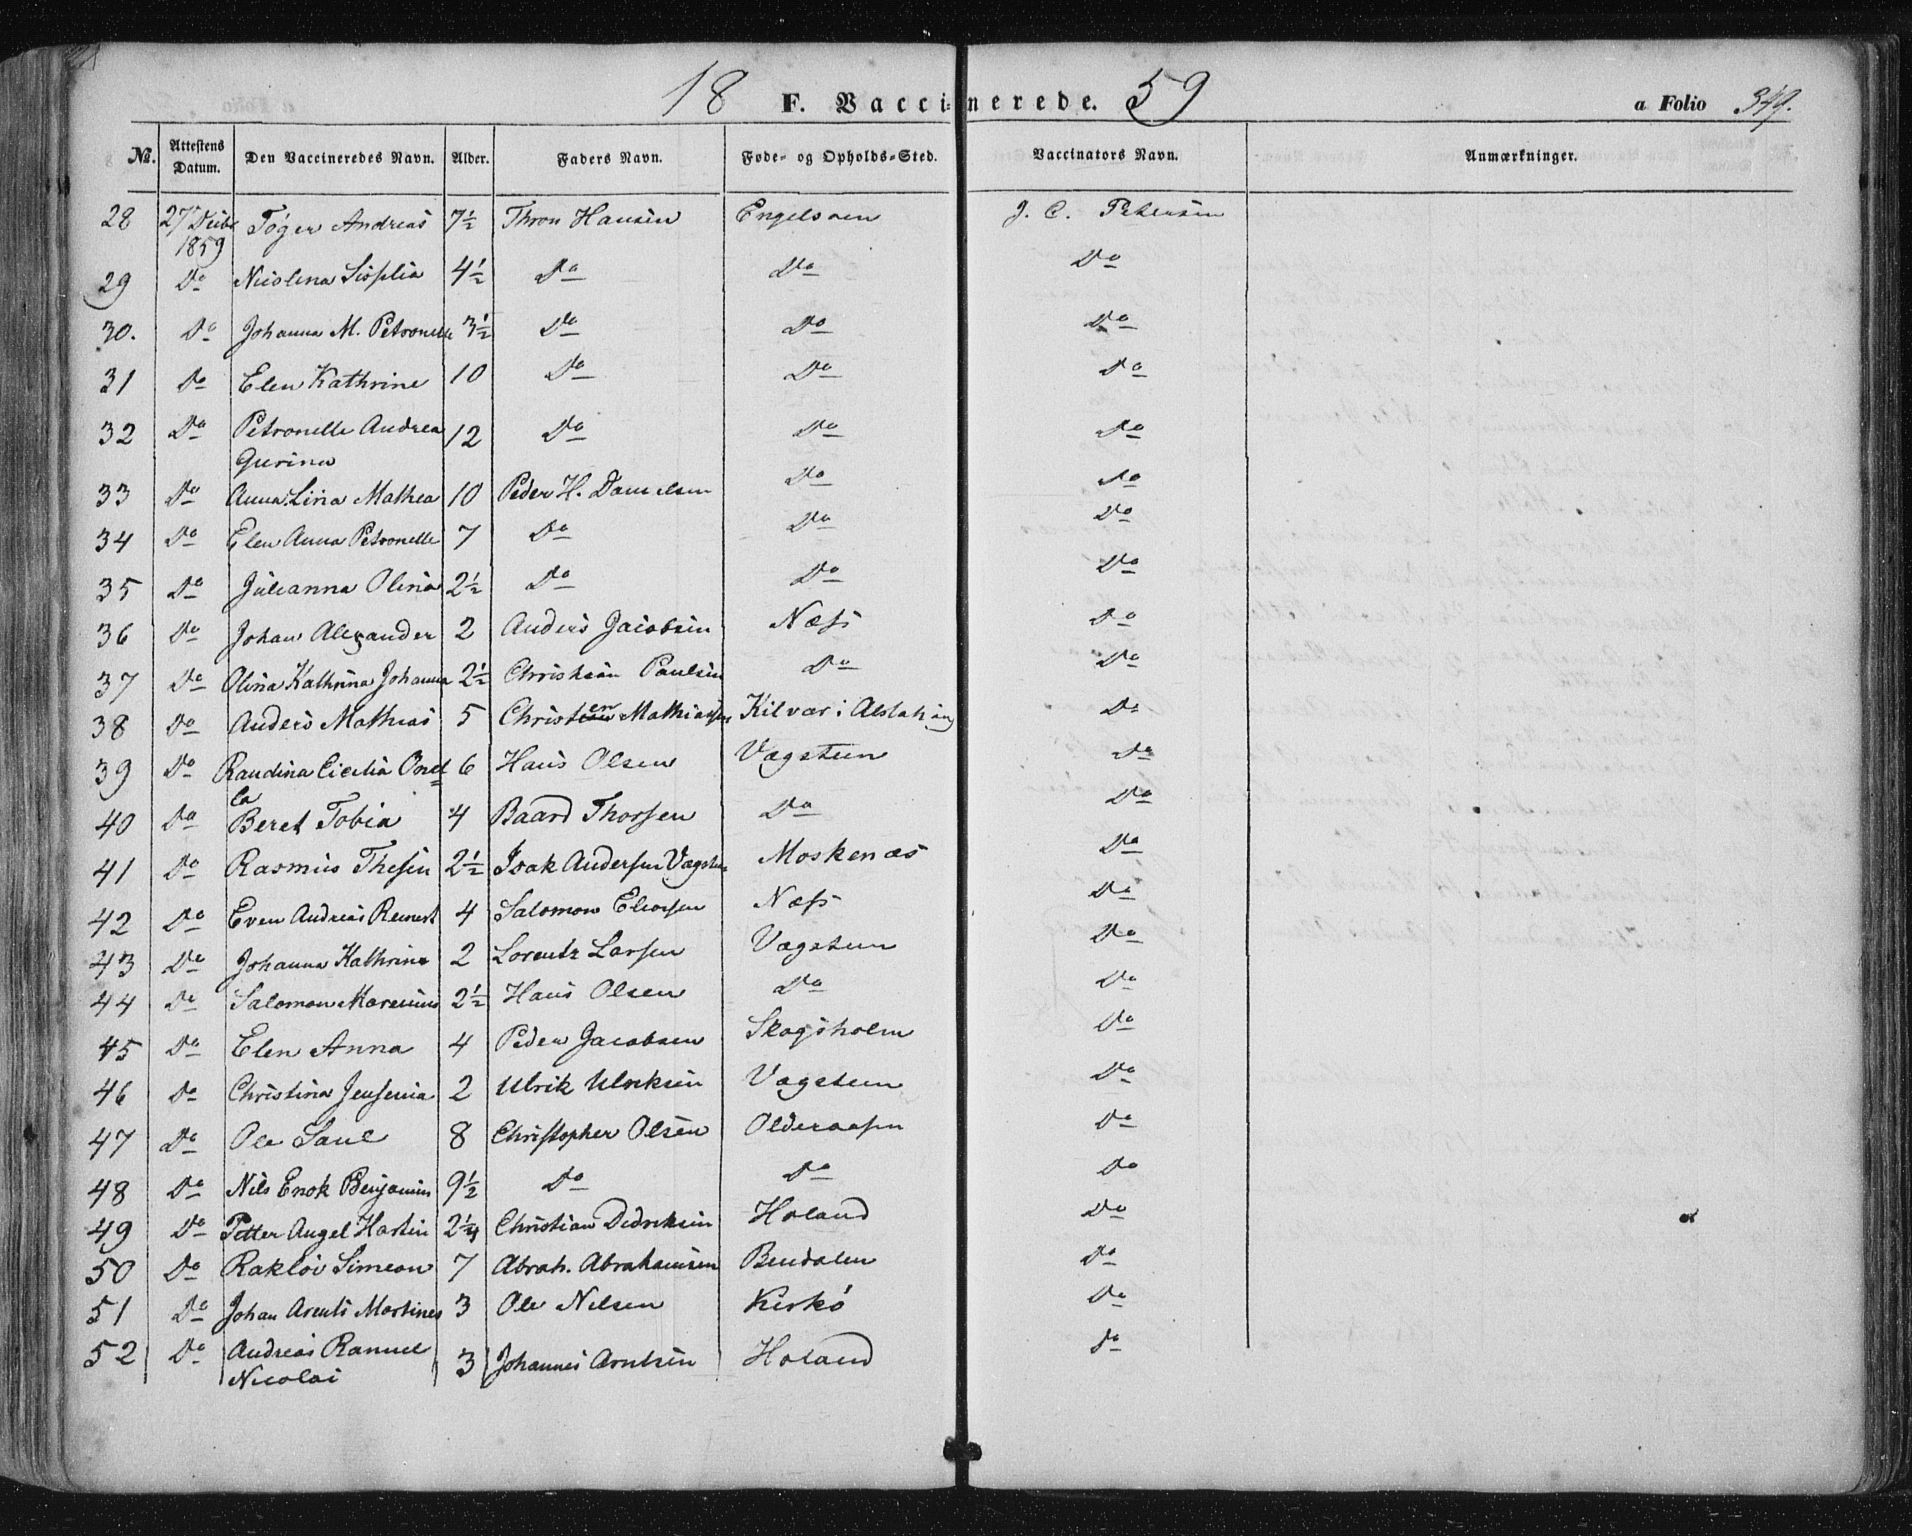 18 F. Vaccinerede. 59 a Folio 349.
№. Attestens Datum. Den Vaccineredes Navn. Alder. Faders Navn. Føde- og Opholds-Sted. Vaccinators Navn. Anmærkninger.
28 27 Decbr 1859 Töger Andreas 7½ Thron Hansen Engelsöen J. C. Petersen
29 Do Nicolina 4½ Do Do Do
30. Do Johanna M. Petronelle 3½ Do Do Do
31 Do Elen Kathrine 10 Do Do Do
32 Do Petronelle Andrea 12 Do Do Do
Gurina
33 Do Anna Lina Mathea 10 Peder H. Danielsen Do Do
34 Do Elen Anna Petronelle 7 Do Do Do
35 Do Julianna Olina 2½ Do Do Do
36 Do Johan Alexander 2 Anders Jacobsen Næss Do
37 Do Olina Kathrina Johanna 2½ Christian Paulsen Do Do
38 Do Anders Mathias 5 Christen Mathiassen Kilvær i Alstahaug Do
39 Do Randina Cicilia Onel 6 Hans Olsen Vægsteen Do
la
40 Do Beret Tobia 4 Baard Thorsen Do Do
41 Do Rasmus Thesen 2½ Isak Andersen Vægsteen Moskenæs Do
42 Do Even Andreas Reinert 4 Salomon Eliasen Næss Do
43 Do Johanna Kathrine 2 Lorentz Larsen Vægsteen Do
44 Do Salomon Marenius 2½ Hans Olsen Do Do
45 Do Elen Anna 4 Peder Jacobsen Skogsholm Do
46 Do Christina Jensenia 2 Ulrik Ulriksen Vægsteen Do
47 Do Ole Saul 8 Christopher Olsen Olderaasen Do
48 Do Nils Enok Benjamin 9½ Do Do Do
49 Do Petter Angel Hartin 2¼ Christian Didriksen Holand Do
50 Do Raklöv Simeon 7 Abrah. Abrahamsen Bendalen Do
51 Do Johan Arents Martines 3 Ole Nilsen Kirkö Do
52 Do Andreas Ranuel 3 Johannes Arntsen Holand Do
Nicolai